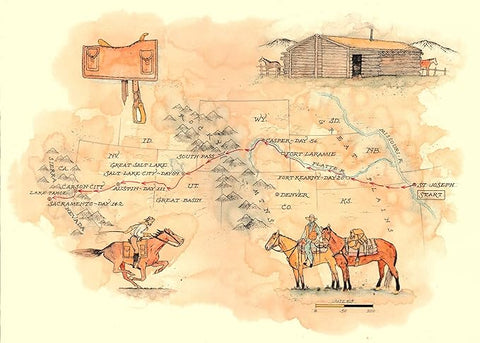 WY.
SD.
MISSOURI R.
ID.
ROCKY
GREAT
CASPER-DAY 54
NV.
GREAT SALT LAKE
SOUTH PASS
FORT LARAMIE
NB.
SALT LAKE CITY-DAY 89
PLATTE R.
SIERRA
CA.
FORT KEARNY-DAY 20
CARSON CITY
AUSTIN-DAY 111
UT.
MTNS.
ST. JOSEPH
LAKE TAHOE
GREAT BASIN
DENVER
PLAINS
START
SACRAMENTO-DAY 142
NEVADA
CO.
KS.
MILES
0